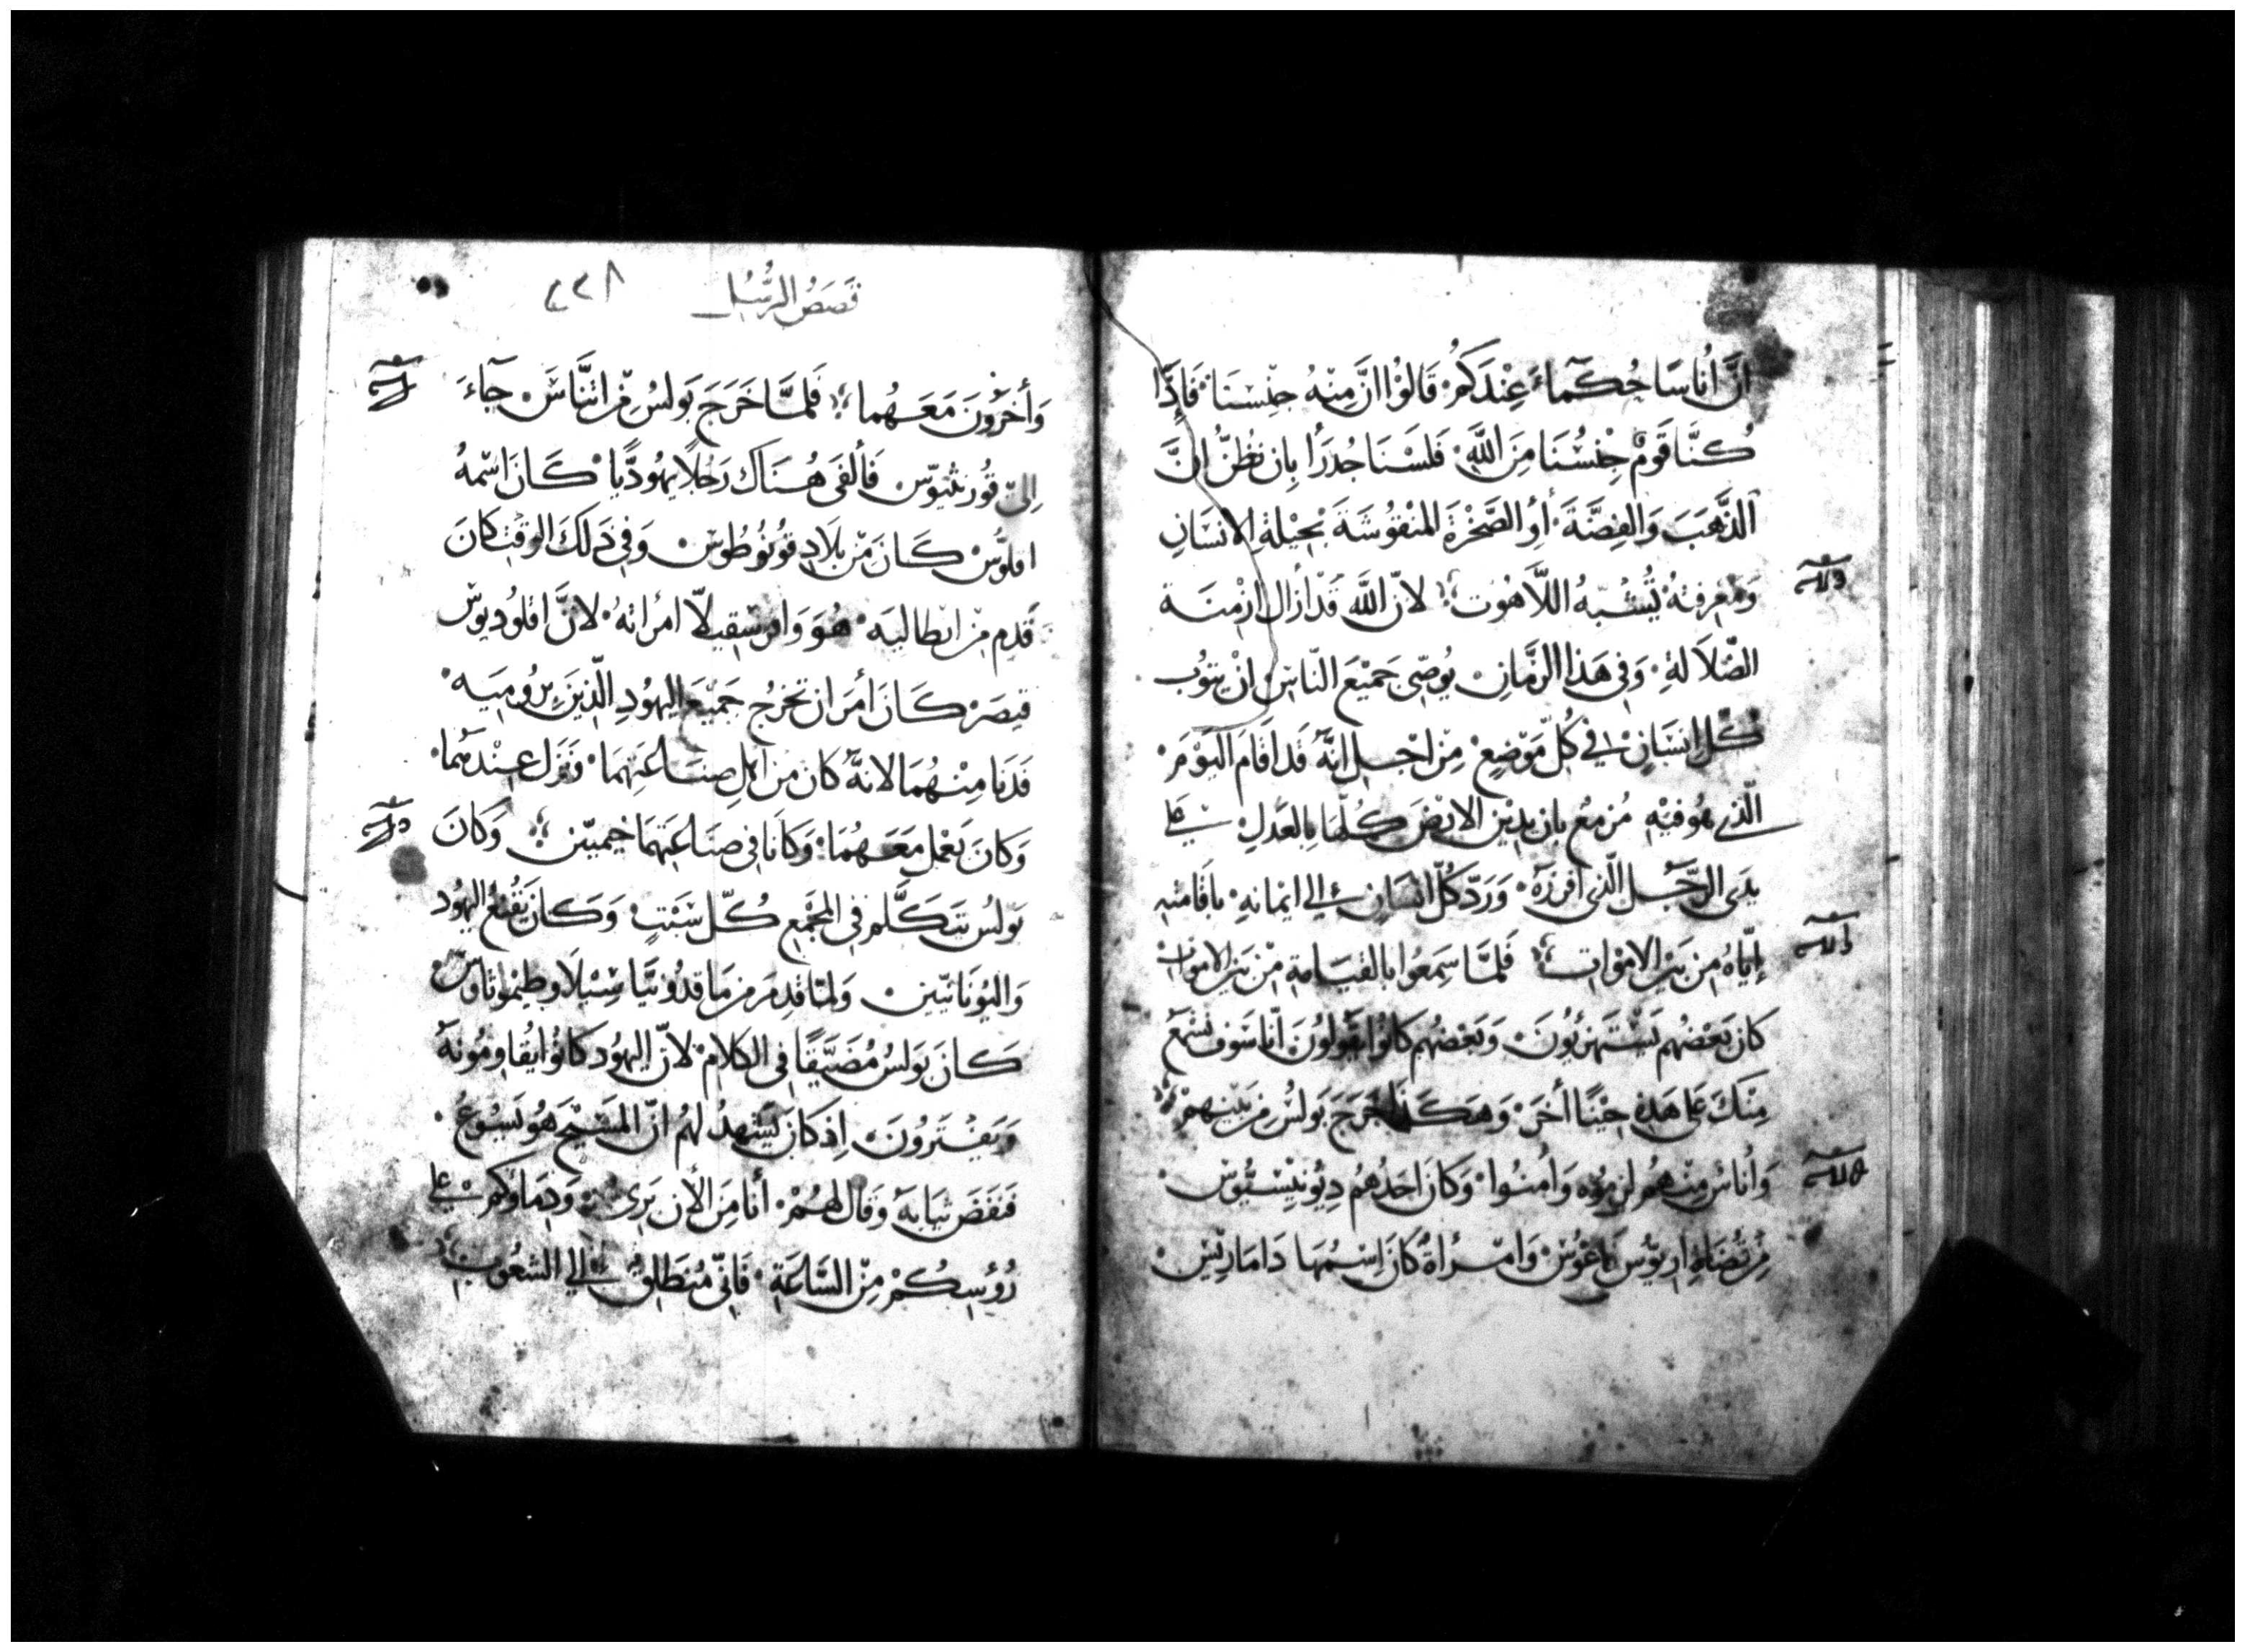 انَّ اُناسًا حُكَمآءَ عِنْدَكُمْ قَالوُا انَّ مِنْهُ جِنْسَنَا فَاِذَا
كُنَّا قَومٌ جِنْسُنَا مِنَ اللَّهِ فَلَسْنَا جُدَرَأ بِان نَظُنَّ انَّ
الذَّهَبَ وَالفِضَّةَ أو الصَّخْرَةَ المنْقوُشَةَ بِحِيْلةِ الانسَانِ
وَمَعْرِفتهُ تُشْبهُ اللَّاهُوت لانّ اللَّه قَدْ أزَال ازْمِنَة
الضّلاَلةِ وَفى هَذا الزَّمَانِ يُوصّى جَميْعَ النّاسِ انْ يتوُب
كُلّ اِنسَانٍ فى كُلّ مَوْضِعٍ مِنْ اجْل انهُ قَد اقَامَ اليَوْمَ
الّذى هُو فيْهِ مُزْمعٌ بان يدِيْن الارْضَ كلّهَا بِالعَدْلِ على
يدَى الرّجُل الّذى افرزَهُ وَرَدّ كُلّ انسَانٍ الي ايمانهِ باقَامته
إيّاهُ مِن بَيْن الامْوَات فَلمَّا سَمِعُوا بالقيَامةِ مِنْ بَيْن الامْوات
كان بَعْضُهم يَسْتهزئونَ وَبَعْضُهم كانوُا يقَولونَ انّا سَوف نسْمَعُ
مِنْكَ على هَذهِ حِيْنًا اخَر وَهَكَذا خرَجَ بَولسُ مِن بَيْنهمْ
وَاُناسٌ مِنهمُ لزِمُوُه وَآمنُوا وَكانَ احَدُهُم دِيُونيْسيُوُس
مِن قُضَاةِ اريوُس باغوُس وَامْرأةٌ كانَ اِسْمُهَا دَامَاريْس
قَصَصُ الرُّسُل ٤٣٨
وَأخرُونَ مَعَهُما فَلمَّا خَرَجَ بَولسُ مِنْ اثنَّاسَ جآءَ
اِلى قُورنثيوُس فَألفَى هُنَاك رَجلاً يهُودَّيا كَانَ اسْمهُ
اقلوُّس كَانَ مِنْ بلَادِ فونوُطُوس وَفى ذَلكَ الوَقت كَانَ
قَدِم مِن ايطاليَه هُوَ وَافرِسْقيلاّ امرأتهُ لانَّ اقلوُديوُس
قيصَرْ كَانَ أمَر ان تخرجُ جَميْعَ اليهُودِ الّذينَ بِرُوميَه
فَدَنَا مِنْهُمَا لانهُ كان مِن اهْلِ صنَاعَتِهمَا وَنزَل عِندَهمَا
وَكانَ يَعْمَل مَعَهُمَا وَكَانَا فى صنَاعَتِهمَا خيميّين وَكانَ
بَولسُ يَتكَلَّم فى المجْمَع كُلّ سَبْتٍ وَكانَ يُقنِعُ اليهُود
وَاليُونَانيّين وَلمّا قدِمَ مِن مَاقدُونيَّا سِيْلاَ وطيموُثاوُس
كانَ بَولسُ مُضَيّقًا فى الكلامِ لانّ اليهُود كانوُا يُقَاومُونَهُ
وَيَفتَرُونَ اِذ كَانَ يَشهدُ لهُم انّ المَسيْح هُو يَسُوعُ
فنفَضَ ثيَابهُ وَقَال لهُمْ أنا مِن الأن بَرى وَدِمَاؤكم على
رُؤُسِكُمْ مِنْ السَّاعَةِ فَانّى مُنطَلِقٌ الي الشعُوب